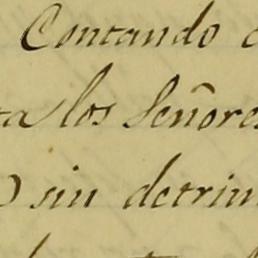 Contando
los Señores
sin detrim